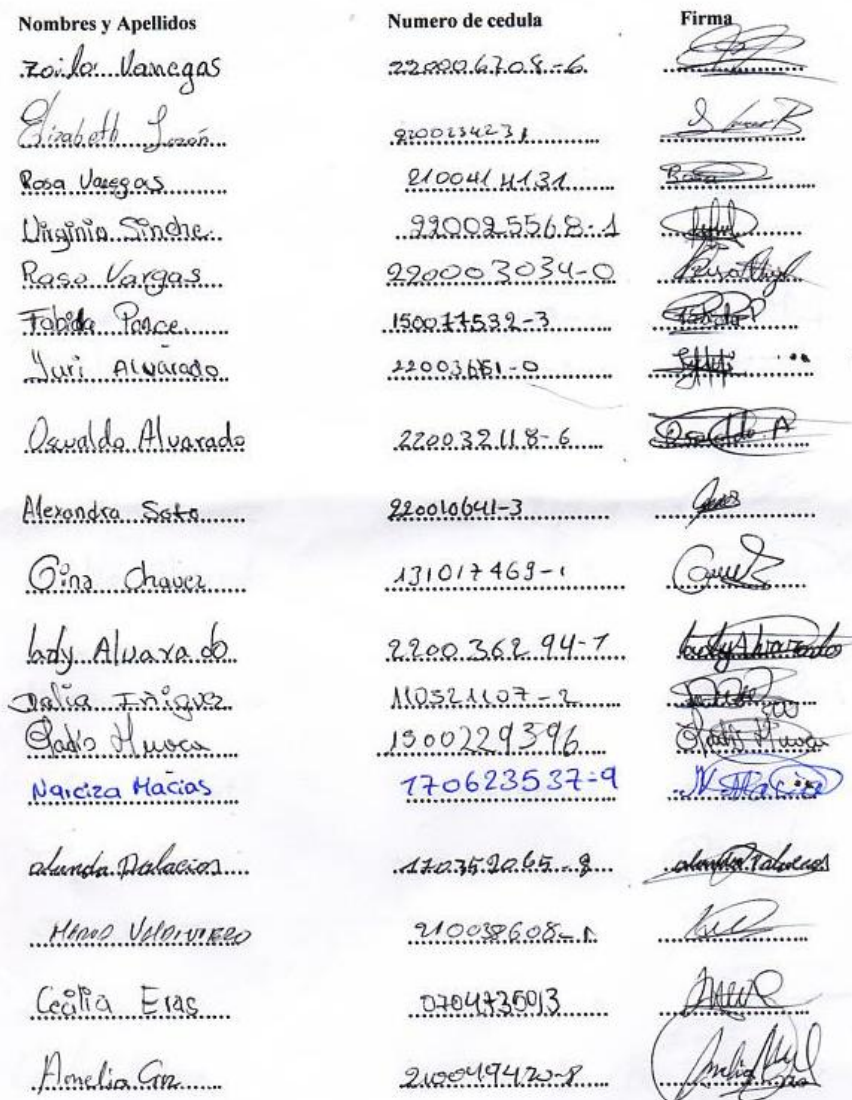 Nombres y Apellidos Numero de cedula Firma
Zoila Vanegas 220006708-6
Elizabeth 2200234231
Rosa Vanegas 2100414131 Rosa
Virginia Sinche 220025568-1
Rosa Vargas 220003034-0
Fabida Ponce 150077532-3
Yuri Alvarado 22003681-0
Oswaldo Alvarado 220032118-6 Oswaldo A
Alexandra Soto 220010641-3
Gina Chavez 131017469-1
Lady Alvarado 220036294-7 Lady Alvarado
Dalia Iñiguez 110521107-2
Gladis Muvca 1500229396 Gladis Muvca
Narciza Macias 170623537-9 N. Macias
Palacios 170352065-8 Palacios
MARIO VALDIVIEZO 210038608-1
Cecilia Eras 0704735013
Amelia 210049420-8 Amelia